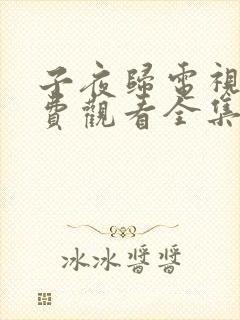 子夜歸電視
費觀看全集
冰冰醬醬